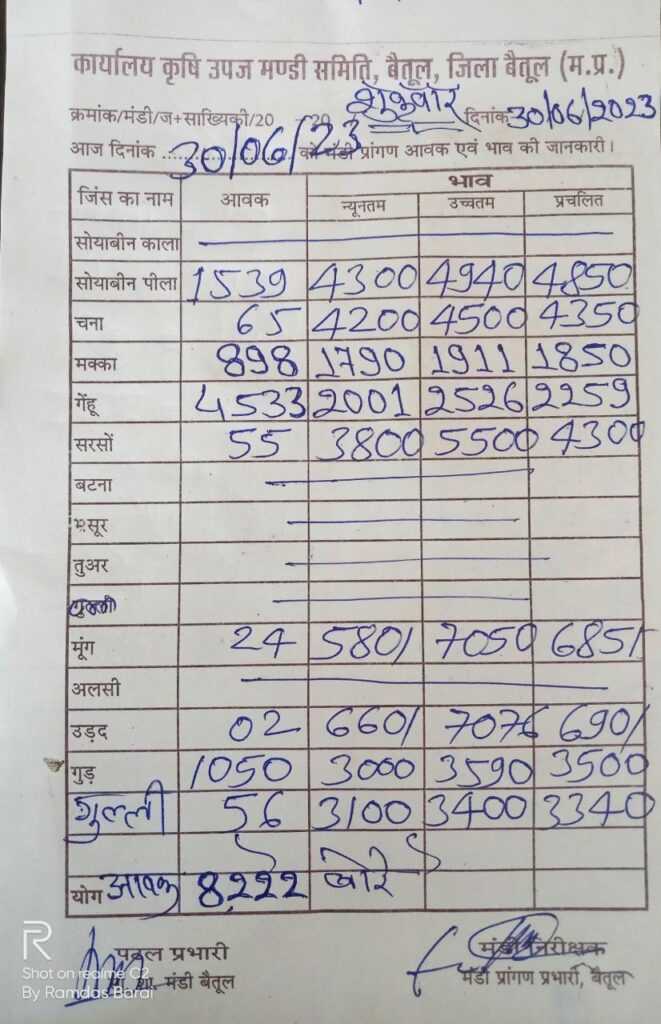 कार्यालय कृषि उपज मण्डी समिति, बैतूल, जिला बैतूल (म.प्र.)
क्रमांक/मंडी/ज+साख्यिकी/20 - 20 शुक्रवार दिनांक 30/06/2023
आज दिनांक 30/06/23 को मंडी प्रांगण आवक एवं भाव की जानकारी।
जिंस का नाम आवक भाव
न्यूनतम उच्चतम प्रचलित
सोयाबीन काला
सोयाबीन पीला 1539 4300 4940 4850
चना 65 4200 4500 4350
मक्का 898 1790 1911 1850
गेंहू 4533 2001 2526 2259
सरसों 55 3800 5500 4300
बटना
मसूर
तुअर
गुल्ली
मूंग 24 5801 7050 6851
अलसी
उड़द 02 6601 7076 6901
गुड़ 1050 3000 3590 3500
गुल्ली 56 3100 3400 3340
योग आवक 8222 बोरे
प्रभारी
मंडी बैतूल
मंडी निरीक्षक
मंडी प्रांगण प्रभारी, बैतूल
R
Shot on realme C2
By Ramdas Barai